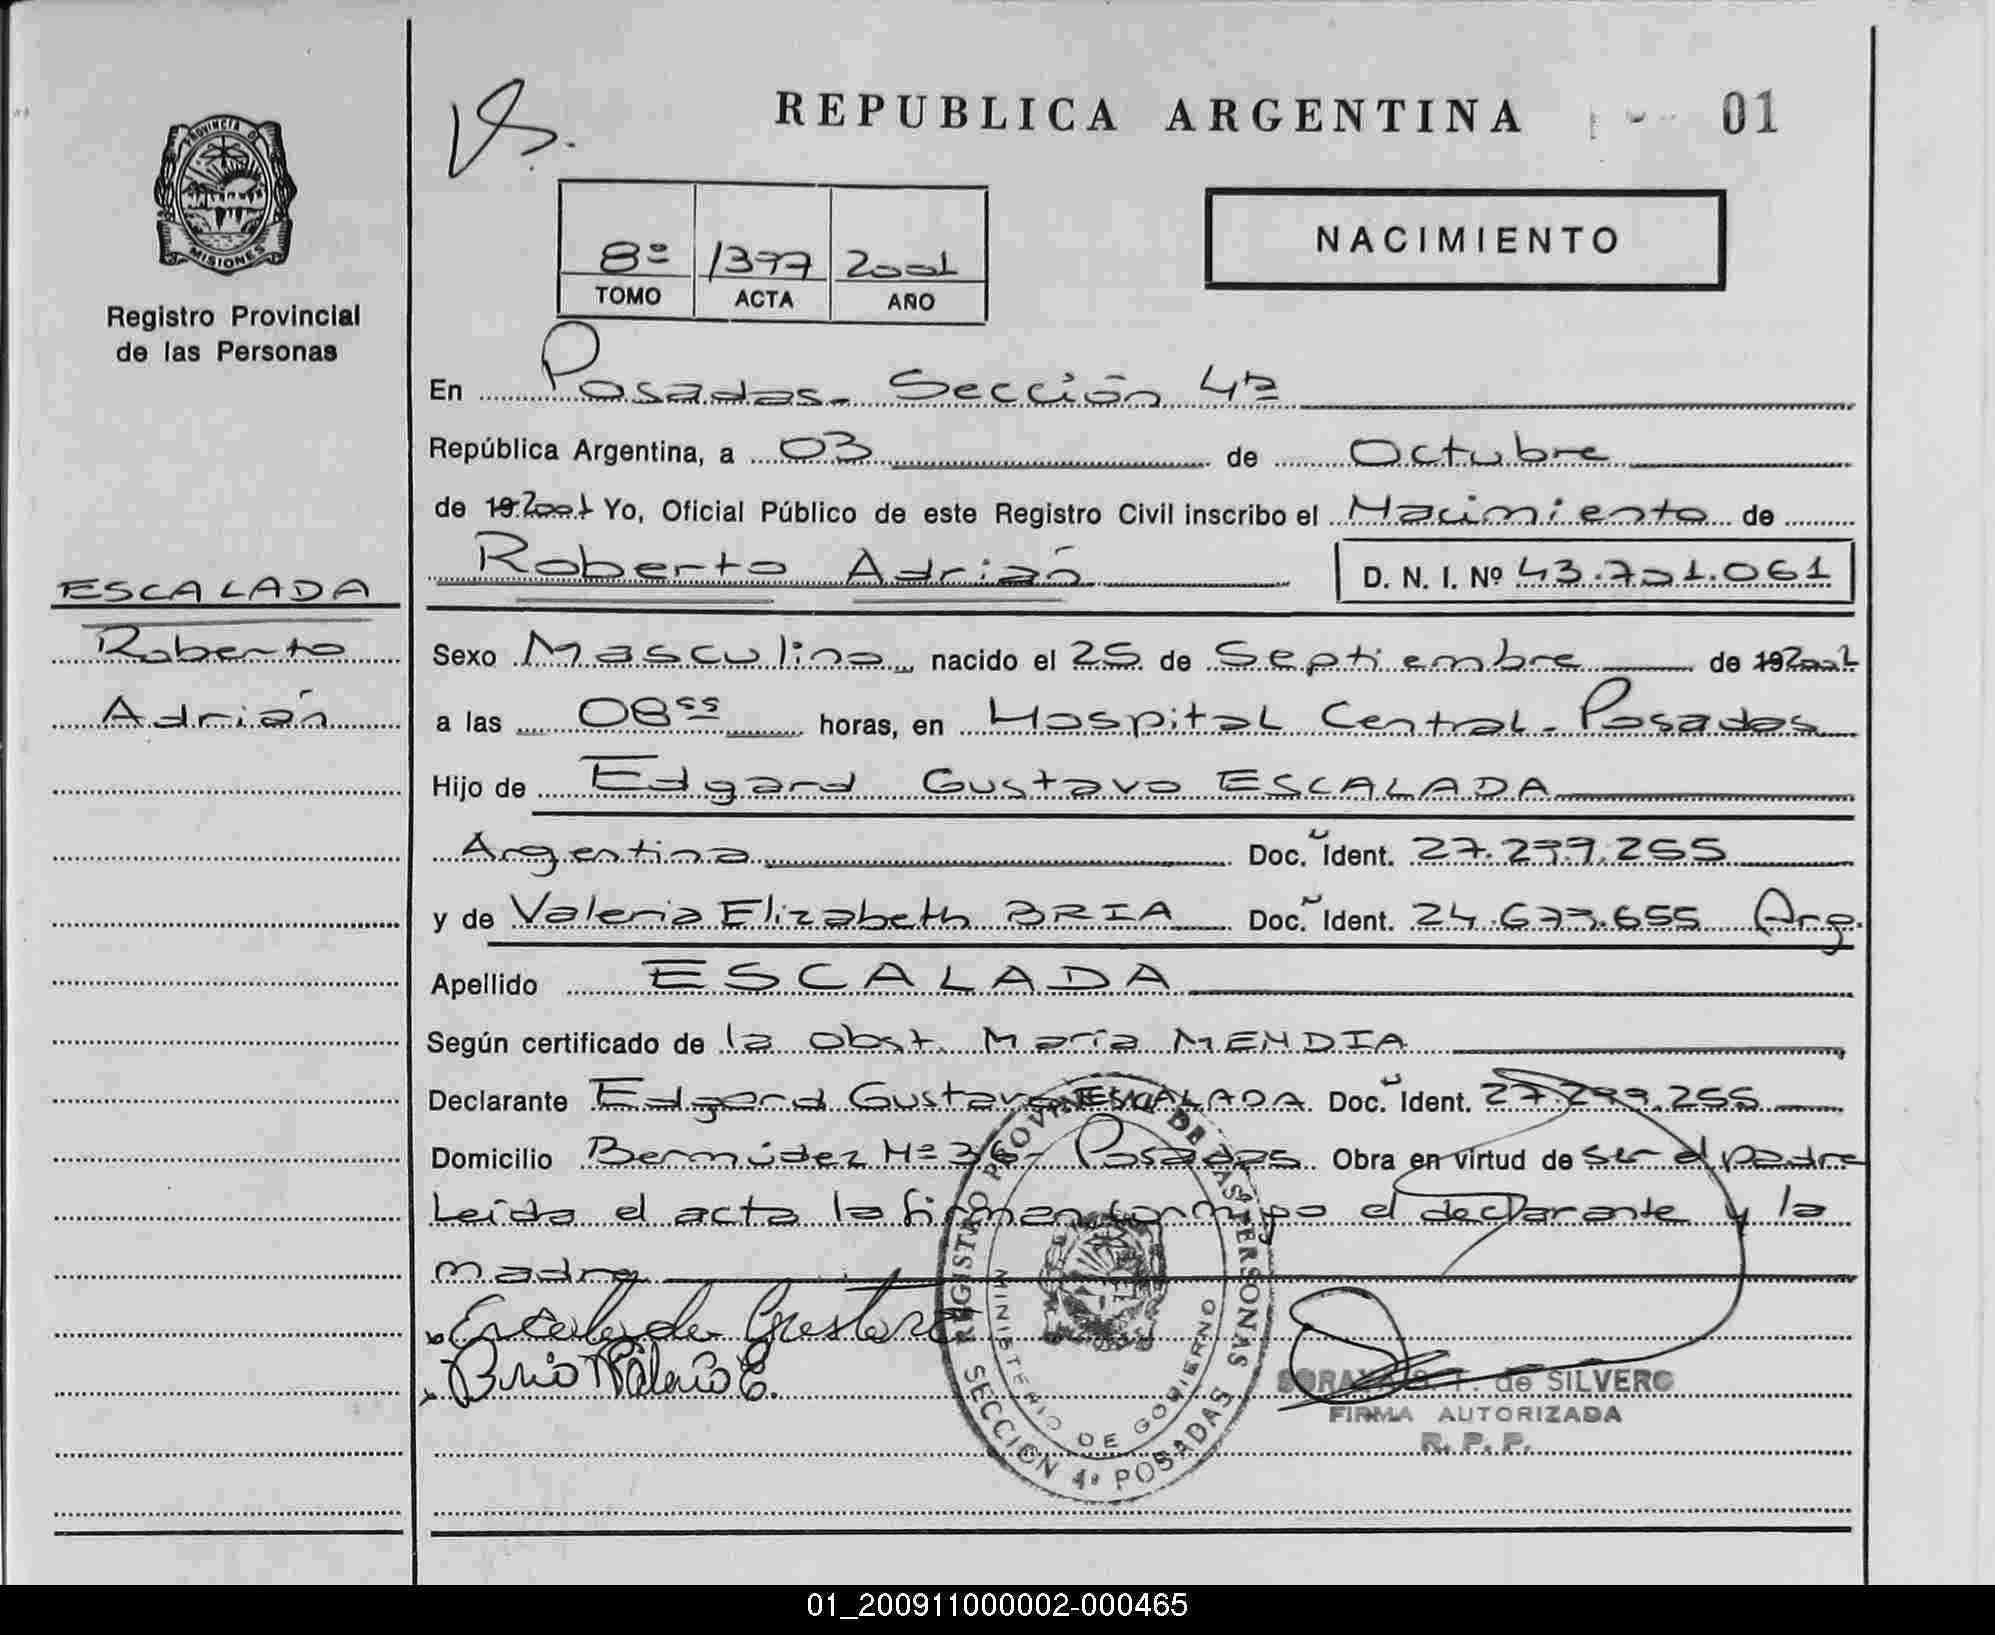 REPUBLICA ARGENTINA
01
PROVINCIA DE
MISIONES
Registro Provincial
de las Personas
ESCALADA
Roberto
Adrián
8º 1377 2001
TOMO ACTA AÑO
NACIMIENTO
En Posadas - Sección 4ª
República Argentina, a 03 de Octubre
de 19 2001 Yo, Oficial Público de este Registro Civil inscribo el Nacimiento de
Roberto Adrián D. N. I. Nº 43.701.061
Sexo Masculino nacido el 25 de Septiembre de 19 2001
a las 08 55 horas, en Hospital Central - Posadas
Hijo de Edgard Gustavo ESCALADA
Argentina Doc. Ident. 27.299.255
y de Valeria Elizabeth BRIA Doc. Ident. 24.673.655 Arg.
Apellido ESCALADA
Según certificado de la obst. María MENDIA
Declarante Edgard Gustavo ESCALADA Doc. Ident. 27.299.255
Domicilio Bermúdez Nº 36 - Posadas Obra en virtud de ser el padre
Leída el acta la firman conmigo el declarante y la
madre
Escalada Gustavo
Bria Valeria E.
REGISTRO PROVINCIAL DE LAS PERSONAS
MINISTERIO DE GOBIERNO
SECCION 4ª POSADAS
de SILVERO
FIRMA AUTORIZADA
R. P. P.
01_200911000002-000465